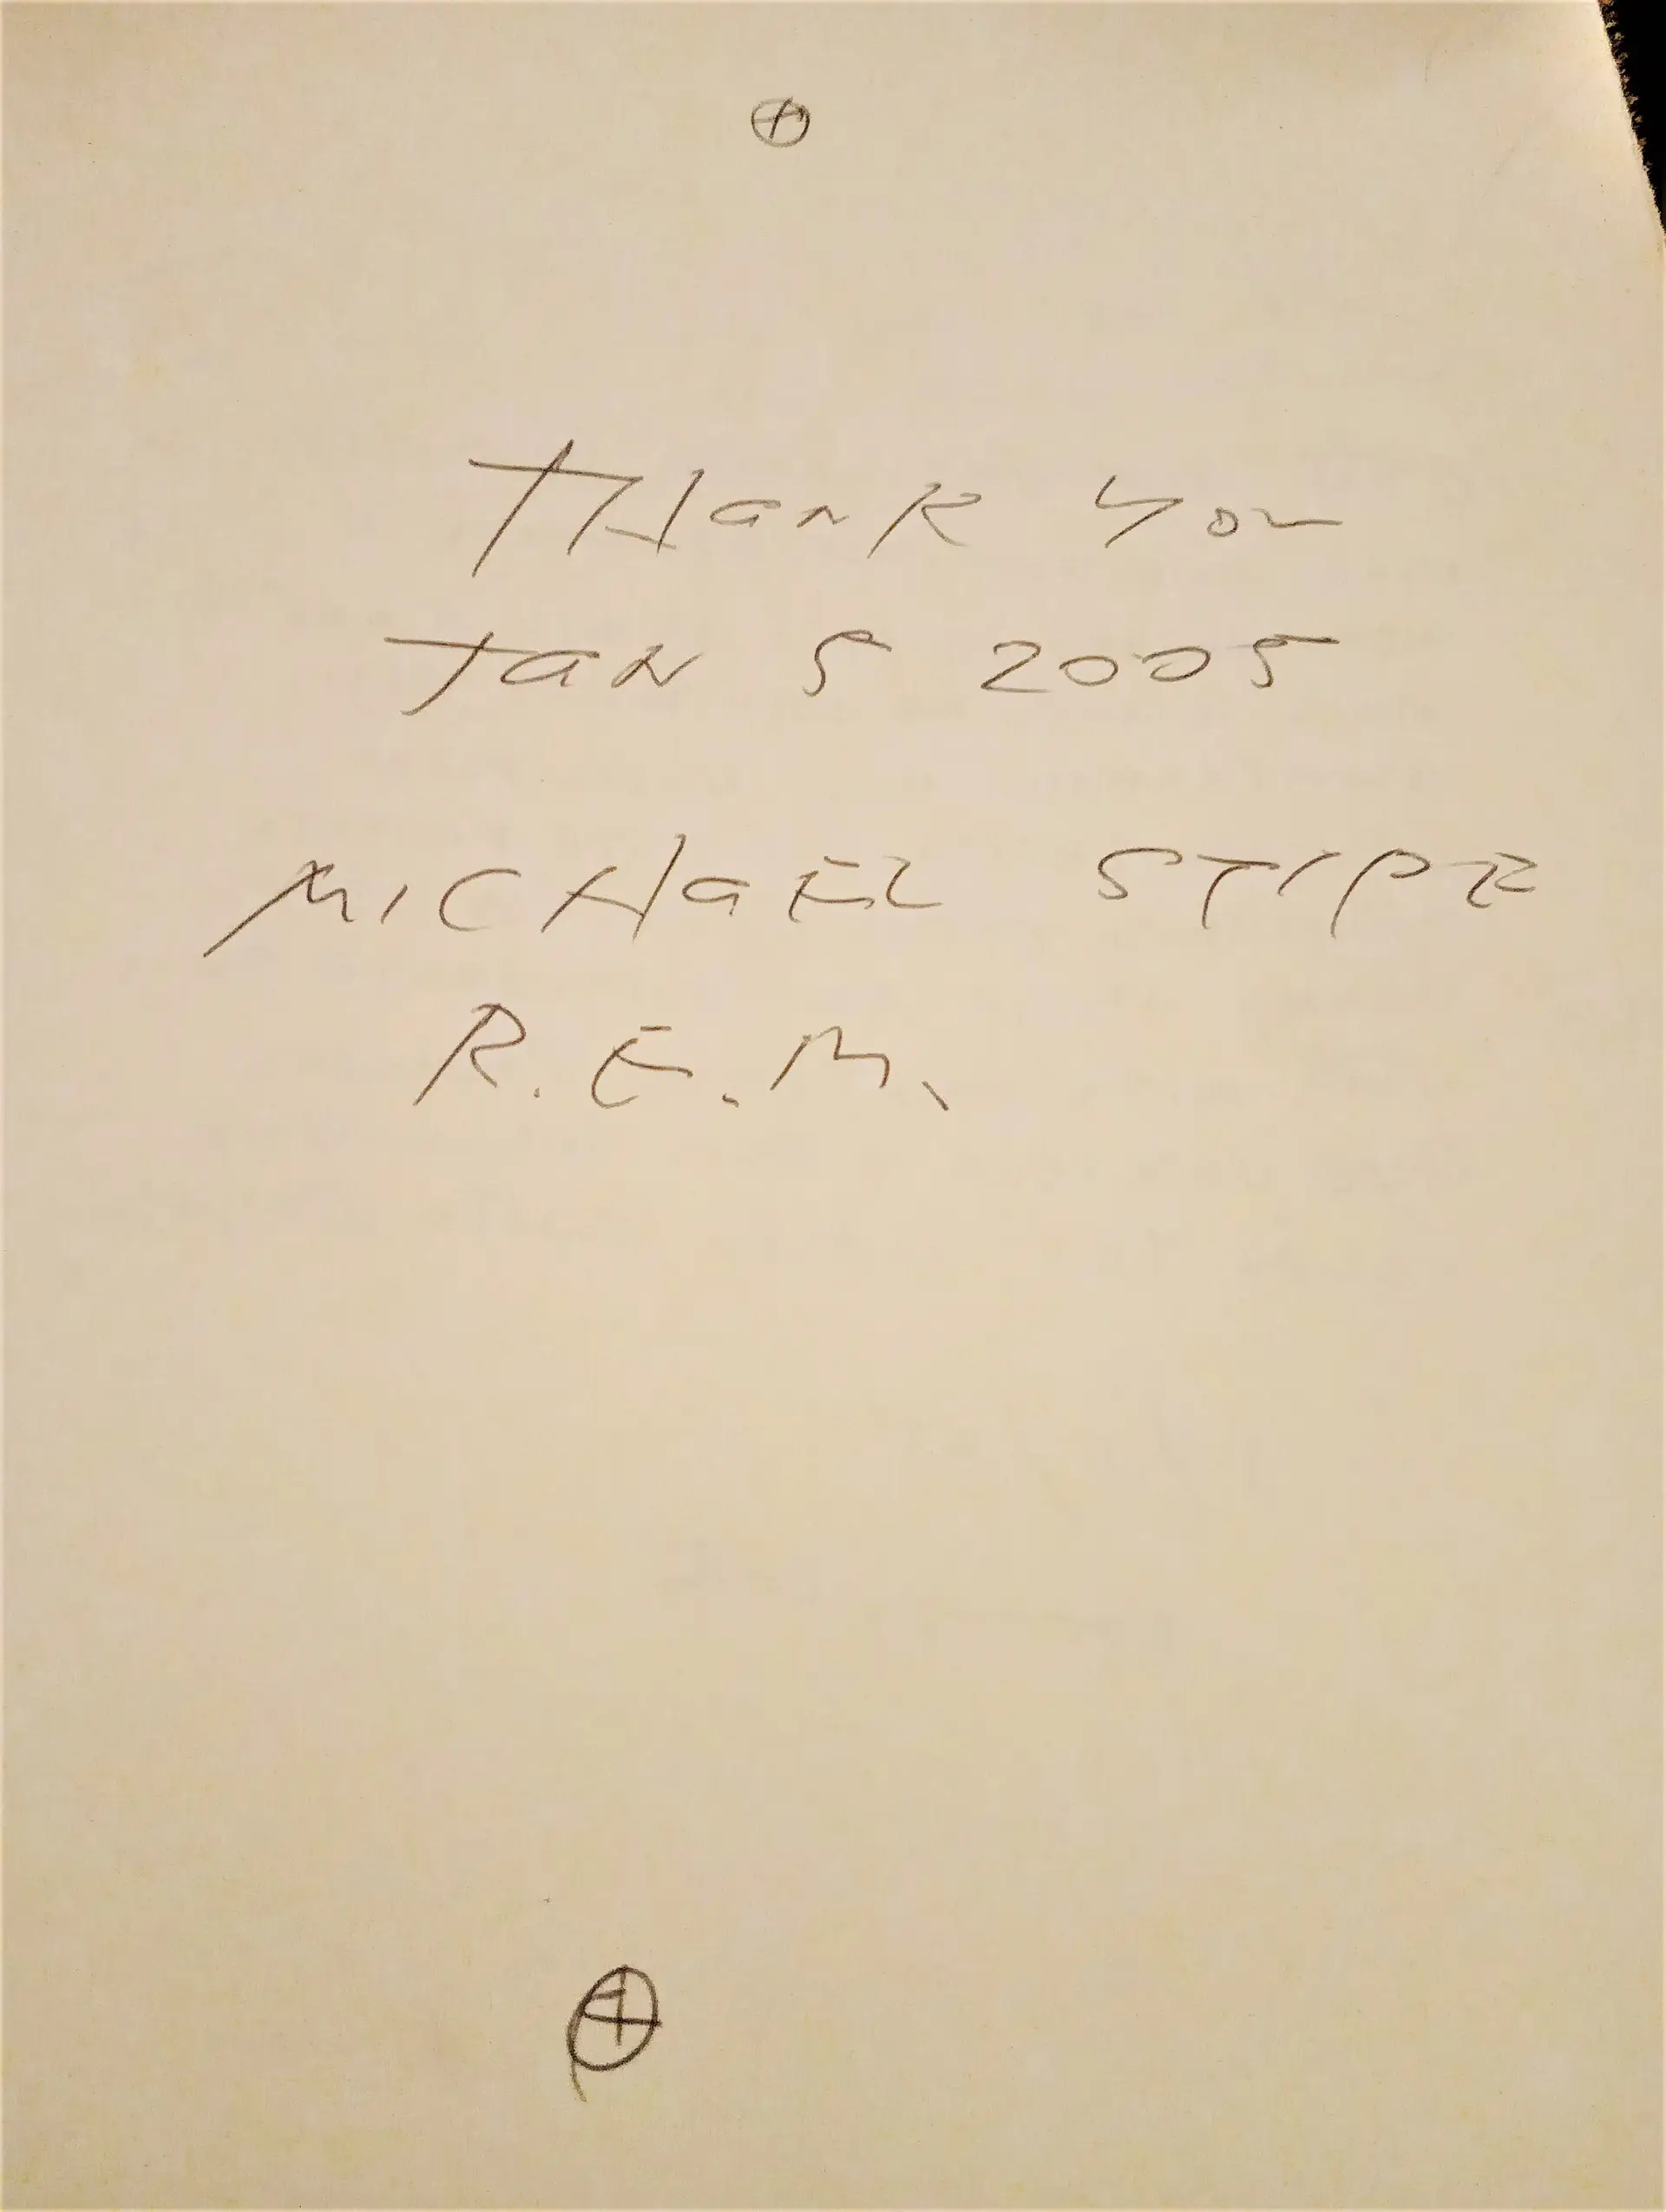 ⊕
THank You
Jan 5 2005
MICHaEL STIPE
R.E.M.
⊕